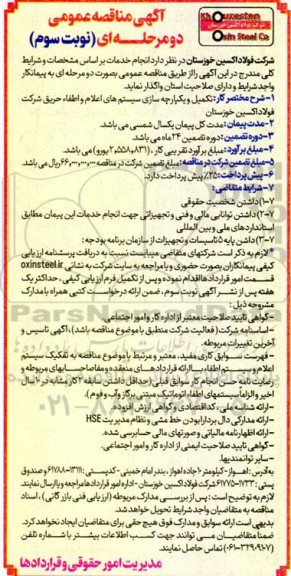 آگهی مناقصه عمومی
دو مرحله ای (نوبت سوم)
Khouzestan
Oxin Steel Co
شرکت فولاد اکسین خوزستان در نظر دارد انجام خدمات بر اساس مشخصات و شرایط
کلی مندرج در این آگهی را از طریق مناقصه عمومی بصورت دو مرحله ای به پیمانکار
واجد شرایط و دارای صلاحیت استان واگذار نماید.
۱- شرح مختصر کار: تکمیل و یکپارچه سازی سیستم های اعلام و اطفاء حریق شرکت
فولاد اکسین خوزستان
۲-مدت پیمان: مدت کل پیمان یکسال شمسی می باشد.
۳-دوره تضمین: دوره تضمین ۲۴ ماه می باشد.
۴- مبلغ برآورد: مبلغ برآورد تقریبی کار، (۲،۵۵۸،۸۳۱ یورو) می باشد.
۵- مبلغ تضمین شرکت در مناقصه: مبلغ تضمین شرکت در مناقصه ۶۶،۰۰۰،۰۰۰،۰۰۰ ریال می باشد.
۶- پیش پرداخت: ۲۵٪ پیش پرداخت دارد.
۷- شرایط متقاضی:
۷-۱) داشتن شخصیت حقوقی
۷-۲) داشتن توانایی مالی و فنی و تجهیزاتی جهت انجام خدمات این پیمان مطابق
استانداردهای ملی و بین المللی
۷-۳) داشتن پایه ۵ تاسیسات و تجهیزات از سازمان برنامه بودجه:
*لازم به ذکر است شرکتهای متقاضی میبایست نسبت به دریافت پرسشنامه ارزیابی
کیفی پیمانکاران بصورت حضوری و یا مراجعه به سایت شرکت به نشانی oxinsteel.ir
قسمت امور قراردادها اقدام نموده و پس از تکمیل فرم ارزیابی کیفی، حداکثر یک
هفته پس از نشر آگهی نوبت سوم، ضمن ارائه درخواست کتبی همراه با مدارک
مشروحه ذیل:
-گواهی تایید صلاحیت معتبر از اداره کار و امور اجتماعی.
- اساسنامه شرکت (فعالیت شرکت منطبق با موضوع مناقصه باشد)، آگهی تاسیس و
آخرین تغییرات مربوطه.
- فهرست سوابق کاری مفید، معتبر و مرتبط با موضوع مناقصه به تفکیک سیستم
اعلام و سیستم اطفاء، با ارائه قراردادهای منعقده و مفاصا حسابهای مربوطه و
رضایت نامه حسن انجام کار سوابق قبلی (حداقل داشتن سابقه ۲ کار مشابه در ۱۰ سال
اخیر و الزاماً سیستمهای اطفاء اتوماتیک مبتنی بر گاز و آب و فوم).
-ارائه شناسه ملی، کد اقتصادی و گواهی ارزش افزوده
-ارائه مدارکی دال بر دارا بودن خط مشی و نظام مدیریت HSE
-ارائه اظهارنامه مالیاتی و صورتهای مالی حسابرسی شده.
-گواهی تایید صلاحیت ایمنی از اداره کار و امور اجتماعی.
-سایر توانمندیها.
به آدرس: اهواز- کیلومتر ۱۰ جاده اهواز، بندر امام خمینی- کدپستی: ۱۳۱۱۱-۶۱۷۸۸ و صندوق
پستی: ۱۷۳۳-۶۱۷۷۵ شرکت فولاد اکسین خوزستان - اداره امور قراردادها مراجعه و یا ارسال نمایند.
لازم به توضیح است: پس از بررسی مدارک مربوطه (ارزیابی فنی بازرگانی)، اسناد
مناقصه به متقاضیان واجد شرایط تحویل خواهد شد.
بدیهی است ارائه سوابق و مدارک فوق هیچ حقی برای متقاضیان ایجاد نخواهد کرد.
ضمنا متقاضیان می توانند جهت کسب اطلاعات بیشتر با شماره تلفن
(۰۶۱-۳۲۹۰۹۱۰۷) تماس حاصل نمایند.
مدیریت امور حقوقی و قراردادها